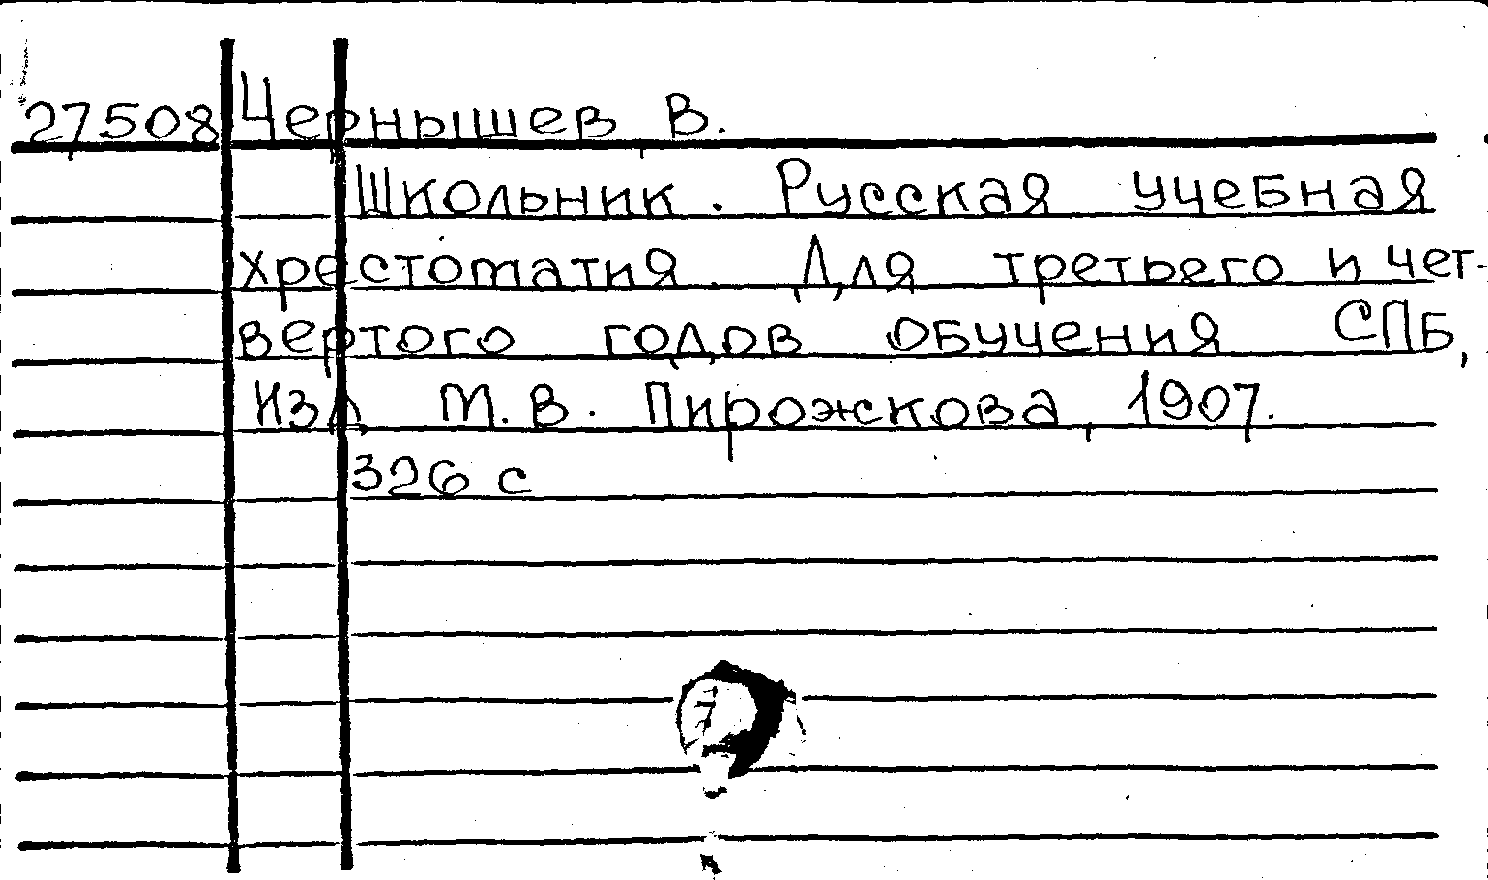 27508 Чернышев В.
Школьник. Русская учебная
хрестоматия. Для третьего и чет-
вертого годов обучения СПБ,
Изд. М.В. Пирожкова, 1907.
326 с